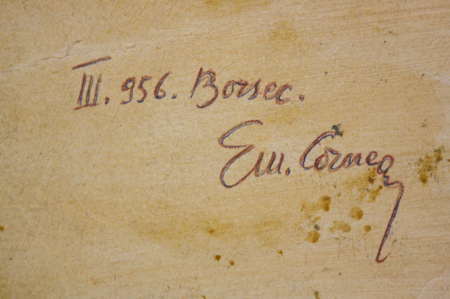 III. 956. Borsec.
Em. Cornea